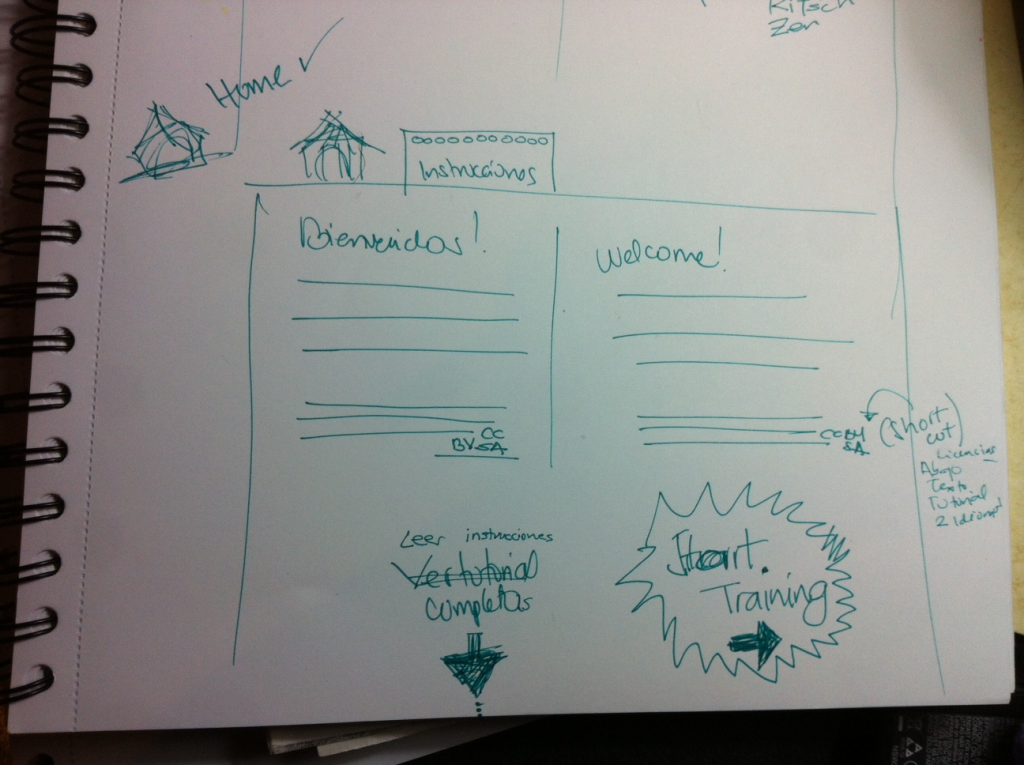 Kitsch
Zen
Home
Instrucciones
Bienvenidos!
Welcome!
CC
BY SA
CC BY
SA
(short
cut)
Licencias
Abajo
Texto
Tutorial
2 Idiomas
Leer instrucciones
Ver tutorial
completas
Start
Training